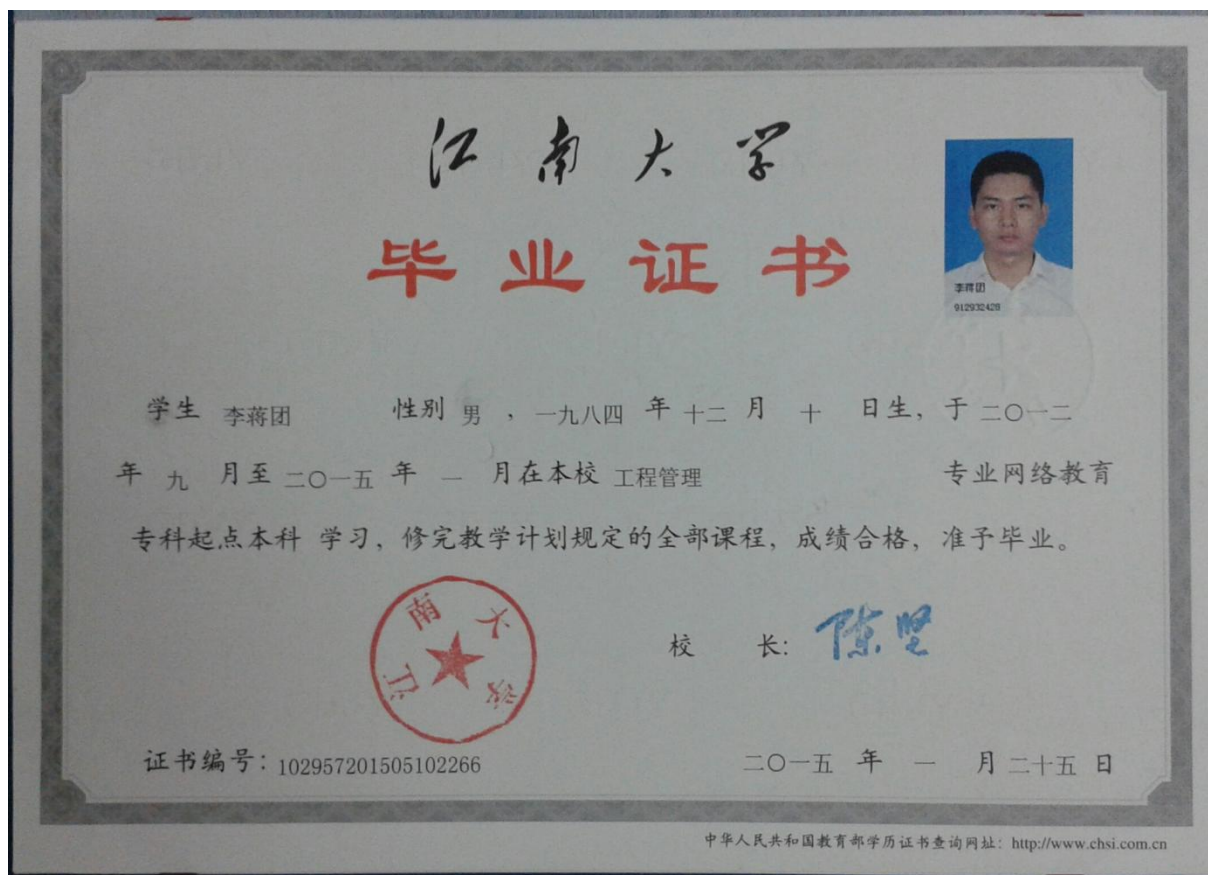 江南大学
毕业证书
李蒋团
912932428
学生 李蒋团 性别 男 ，一九八四 年 十二 月 十 日生，于 二〇一二
年 九 月至 二〇一五 年 一 月在本校 工程管理 专业网络教育
专科起点本科 学习，修完教学计划规定的全部课程，成绩合格，准予毕业。
江南大学
校 长：陈坚
证书编号：102957201505102266 二〇一五 年 一 月 二十五 日
中华人民共和国教育部学历证书查询网址：http://www.chsi.com.cn